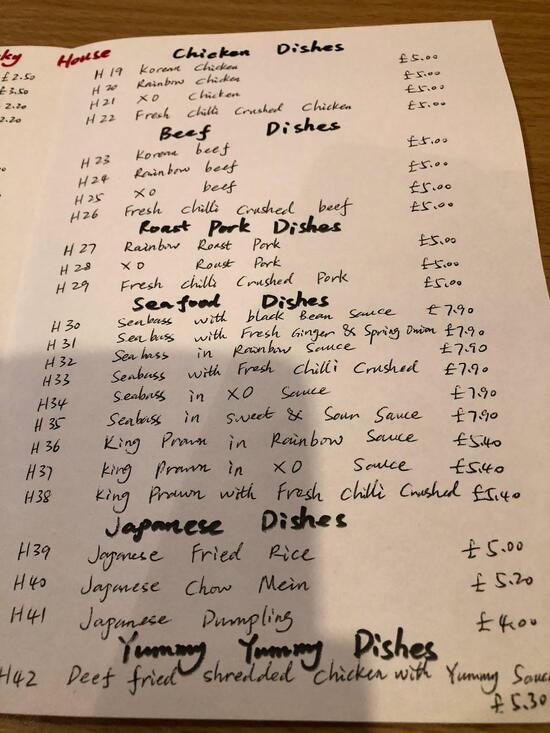 ky House
£2.50
£3.50
2.20
2.20
Chicken Dishes
H19 Korean Chicken £5.00
H20 Rainbow Chicken £5.00
H21 XO Chicken £5.00
H22 Fresh Chilli Crushed Chicken £5.00
Beef Dishes
H23 Korean beef £5.00
H24 Rainbow beef £5.00
H25 XO beef £5.00
H26 Fresh Chilli Crushed beef £5.00
Roast Pork Dishes
H27 Rainbow Roast Pork £5.00
H28 XO Roast Pork £5.00
H29 Fresh Chilli Crushed Pork £5.00
Seafood Dishes
H30 Seabass with black Bean Sauce £7.90
H31 Seabass with Fresh Ginger & Spring Onion £7.90
H32 Seabass in Rainbow Sauce £7.90
H33 Seabass with Fresh Chilli Crushed £7.90
H34 Seabass in XO Sauce £7.90
H35 Seabass in sweet & Sour Sauce £7.90
H36 King Prawn in Rainbow Sauce £5.40
H37 King Prawn in XO Sauce £5.40
H38 King Prawn with Fresh Chilli Crushed £5.40
Japanese Dishes
H39 Japanese Fried Rice £5.00
H40 Japanese Chow Mein £5.20
H41 Japanese Dumpling £4.00
Yummy Yummy Dishes
H42 Deef fried shredded Chicken with Yummy Sauce
£5.30